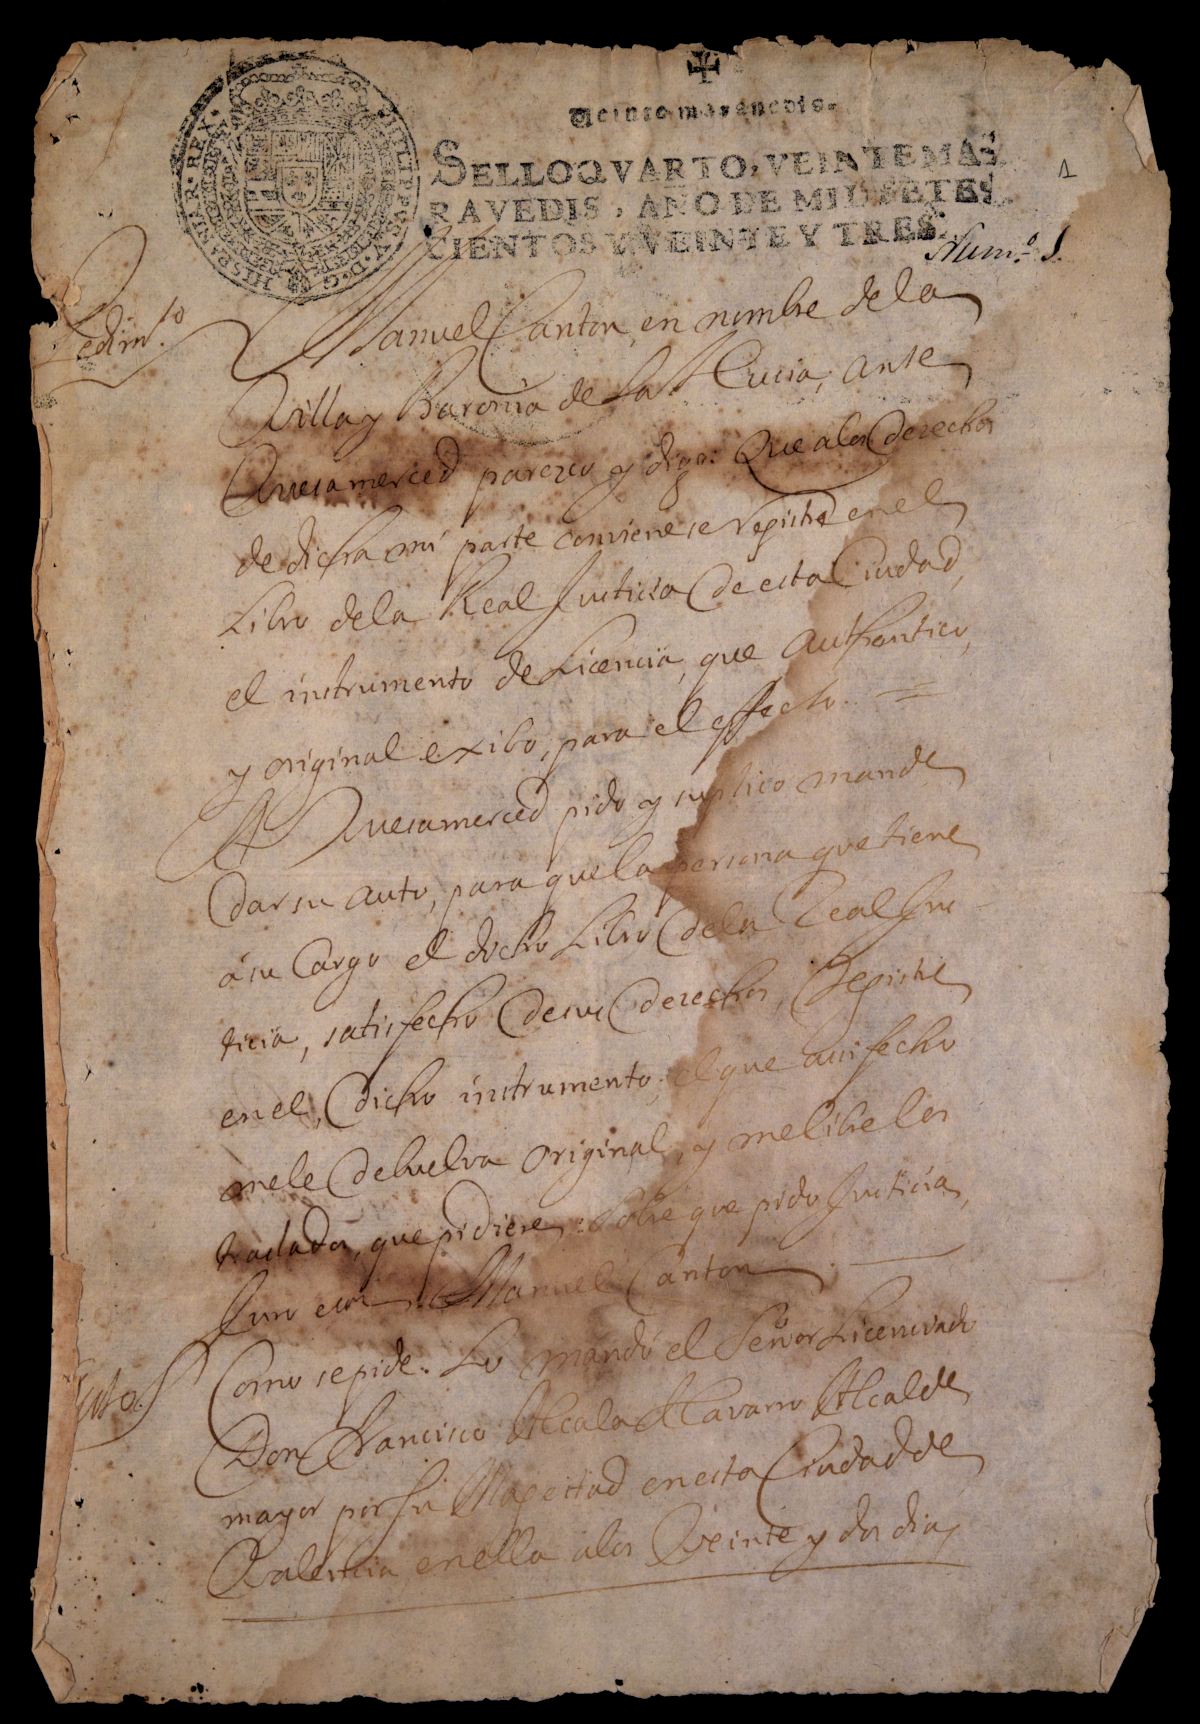 Veinte maravedis.
SELLO QVARTO, VEINTE MA-
RAVEDIS, AÑO DE MIL SETE-
CIENTOS Y VEINTE Y TRES.
PHILIPPVS V. D. G. HISPANIAR. REX.
1
Num.º 1.
Pedim.to
Manuel Canton en nombre de la
Villa y Baronia de la Llucia, ante
Vuesamerced parezco y digo: Que a los derechos
de dicha mi parte conviene se registre en el
Libro de la Real Justicia de esta Ciudad,
el instrumento de Licencia, que authentico,
y original exibo, para el effecto. =
A Vuesamerced pido y suplico mande
dar su auto, para que la persona que tiene
á su Cargo el dicho Libro de la Real Jus-
ticia, satisfecho de sus derechos, Registre
en el, dicho instrumento; el que assi fecho
me le debuelva original, y me libre los
traslados, que pidiere: Sobre que pido Justicia,
Juro etc.ª Manuel Canton
Auto
Como se pide. Lo mandó el Señor Licenciado
Don Francisco Alcala Navarro Alcalde
mayor por su Magestad en esta Ciudad de
Valencia en ella a los Veinte y dos dias